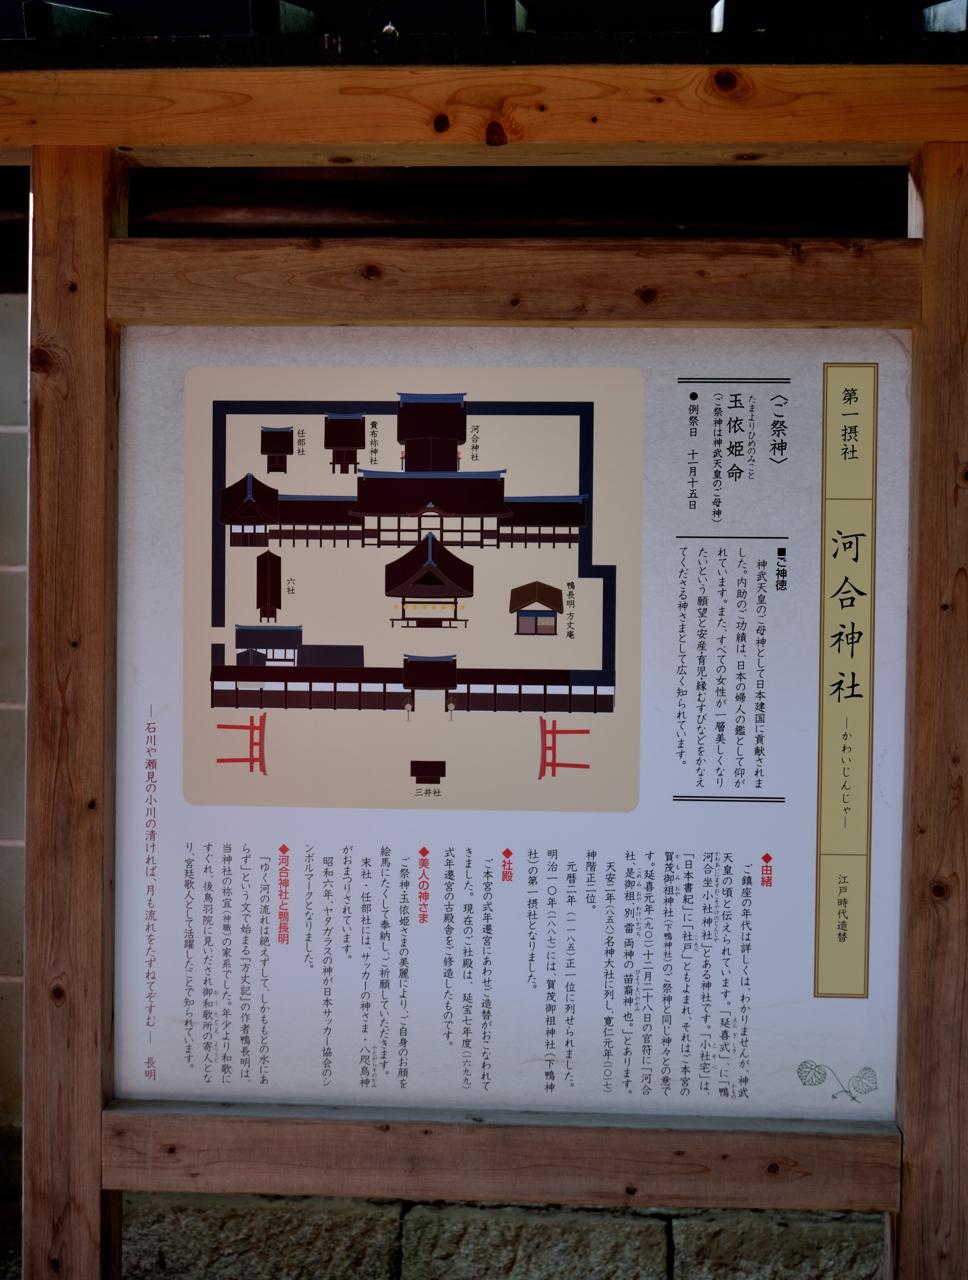 第一摂社
河合神社
―かわいじんじゃ―
江戸時代造替
〈ご祭神〉
たまよりひめのみこと
玉依姫命
(ご祭神は神武天皇のご母神)
●例祭日　十一月十五日
■ご神徳
神武天皇のご母神として日本建国に貢献されま
した。内助のご功績は、日本の婦人の鑑として仰が
れています。また、すべての女性が一層美しくなり
たいという願望と安産・育児・縁むすびなどをかなえ
てくださる神さまとして広く知られています。
河合神社
貴布祢神社
任部社
六社
鴨長明 方丈庵
三井社
◆由緒
ご鎮座の年代は詳しくは、わかりませんが、神武
天皇の頃と伝えられています。「延喜式」に「鴨
河合坐小社神社」とある神社です。「小社宅」は、
「日本書紀」に「社戸」ともよまれ、それはご本宮の
賀茂御祖神社(下鴨神社)のご祭神と同じ神々との意で
す。延喜元年(九〇一)十二月二十八日の官符に「河合
社、是御祖、別雷両神の苗裔神也。」とあります。
天安二年(八五八)名神大社に列し、寛仁元年(一〇一七)
神階正二位。
元暦二年(一一八五)正一位に列せられました。
明治一〇年(一八七七)には、賀茂御祖神社(下鴨神
社)の第一摂社となりました。
◆社殿
ご本宮の式年遷宮にあわせご造替がおこなわれて
きました。現在のご社殿は、延宝七年度(一六七九)
式年遷宮の古殿舎をご修造したものです。
◆美人の神さま
ご祭神・玉依姫さまの美麗により、ご自身のお顔を
絵馬にたくして奉納し、ご祈願していただきます。
末社・任部社には、サッカーの神さま・八咫烏神
がおまつりされています。
昭和六年、ヤタガラスの神が日本サッカー協会のシ
ンボルマークとなりました。
◆河合神社と鴨長明
「ゆく河の流れは絶えずして、しかももとの水にあ
らず」という文で始まる『方丈記』の作者鴨長明は、
当神社の祢宜(神職)の家系でした。年少より和歌に
すぐれ、後鳥羽院に見いだされ御和歌所の寄人とな
り、宮廷歌人として活躍したことで知られています。
―石川や瀬見の小川の清ければ、月も流れをたずねてぞすむ―　長明